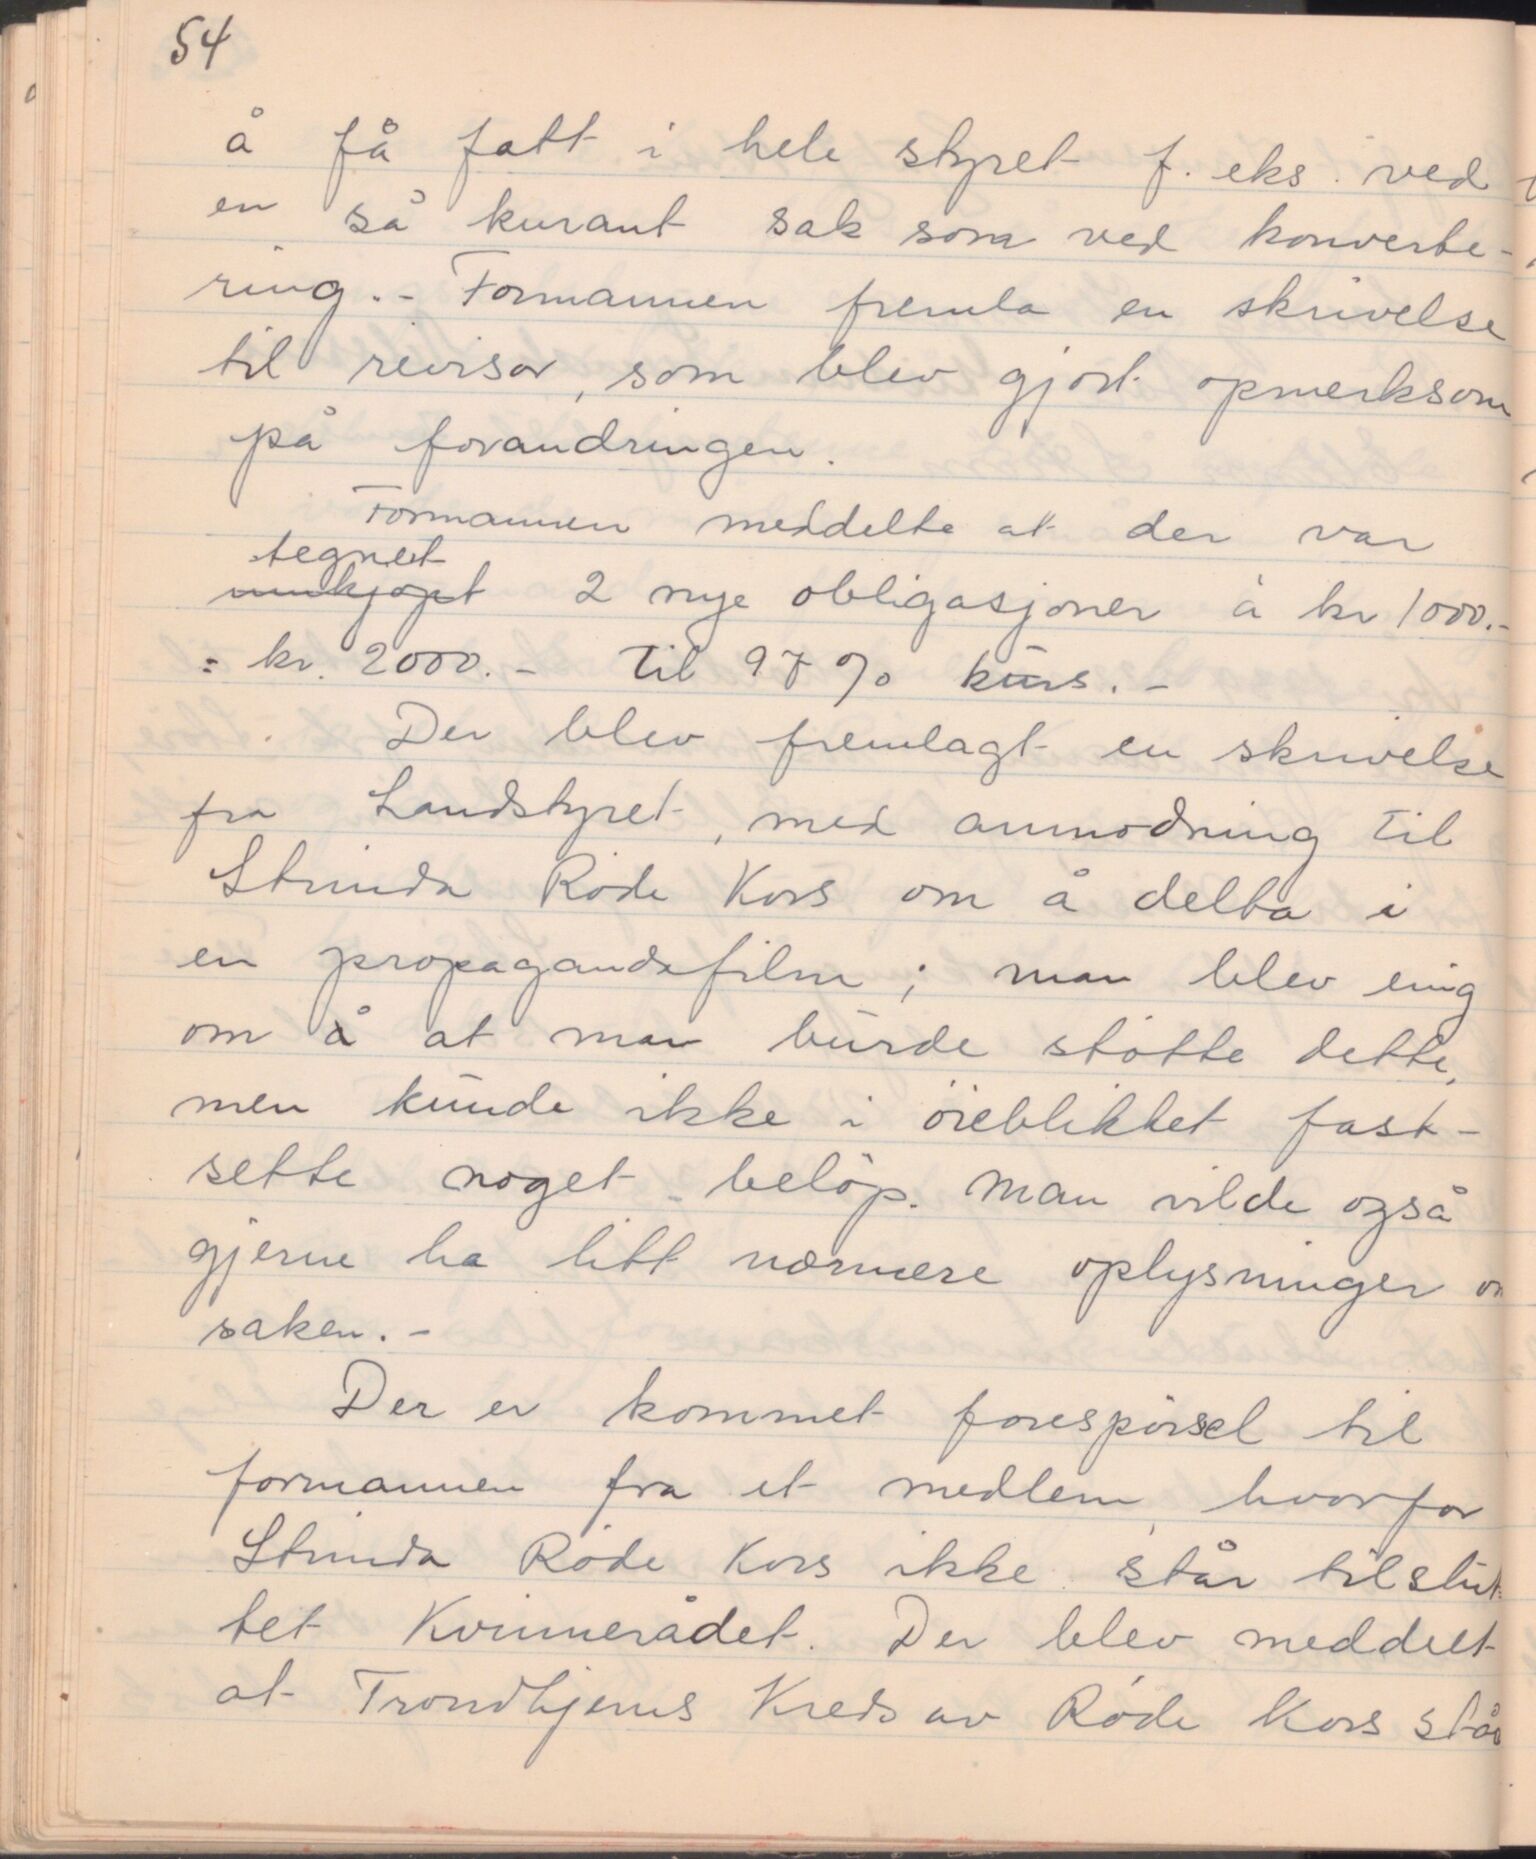 54
å få fatt i hele styret f. eks. ved
en så kurant sak som ved konverte-
ring. - Formannen fremla en skrivelse
til revisor, som blev gjort opmerksom
på forandringen.
Formannen meddelte at der var
tegnet
innkjøpt 2 nye obligasjoner à kr 1000.-
= kr. 2000.- til 97 % kurs. -
Der blev fremlagt en skrivelse
fra Landstyret, med anmodning til
Strinda Røde Kors om å delta i
en propagandafilm; man blev enig
om å at man burde støtte dette,
men kunde ikke i øieblikket fast-
sette noget beløp. Man vilde også
gjerne ha litt nærmere oplysninger om
saken. -
Der er kommet forespørsel til
formannen fra et medlem, hvorfor
Strinda Røde Kors ikke står tilslut-
tet Kvinnerådet. Der blev meddelt
at Trondhjems Kreds av Røde Kors står